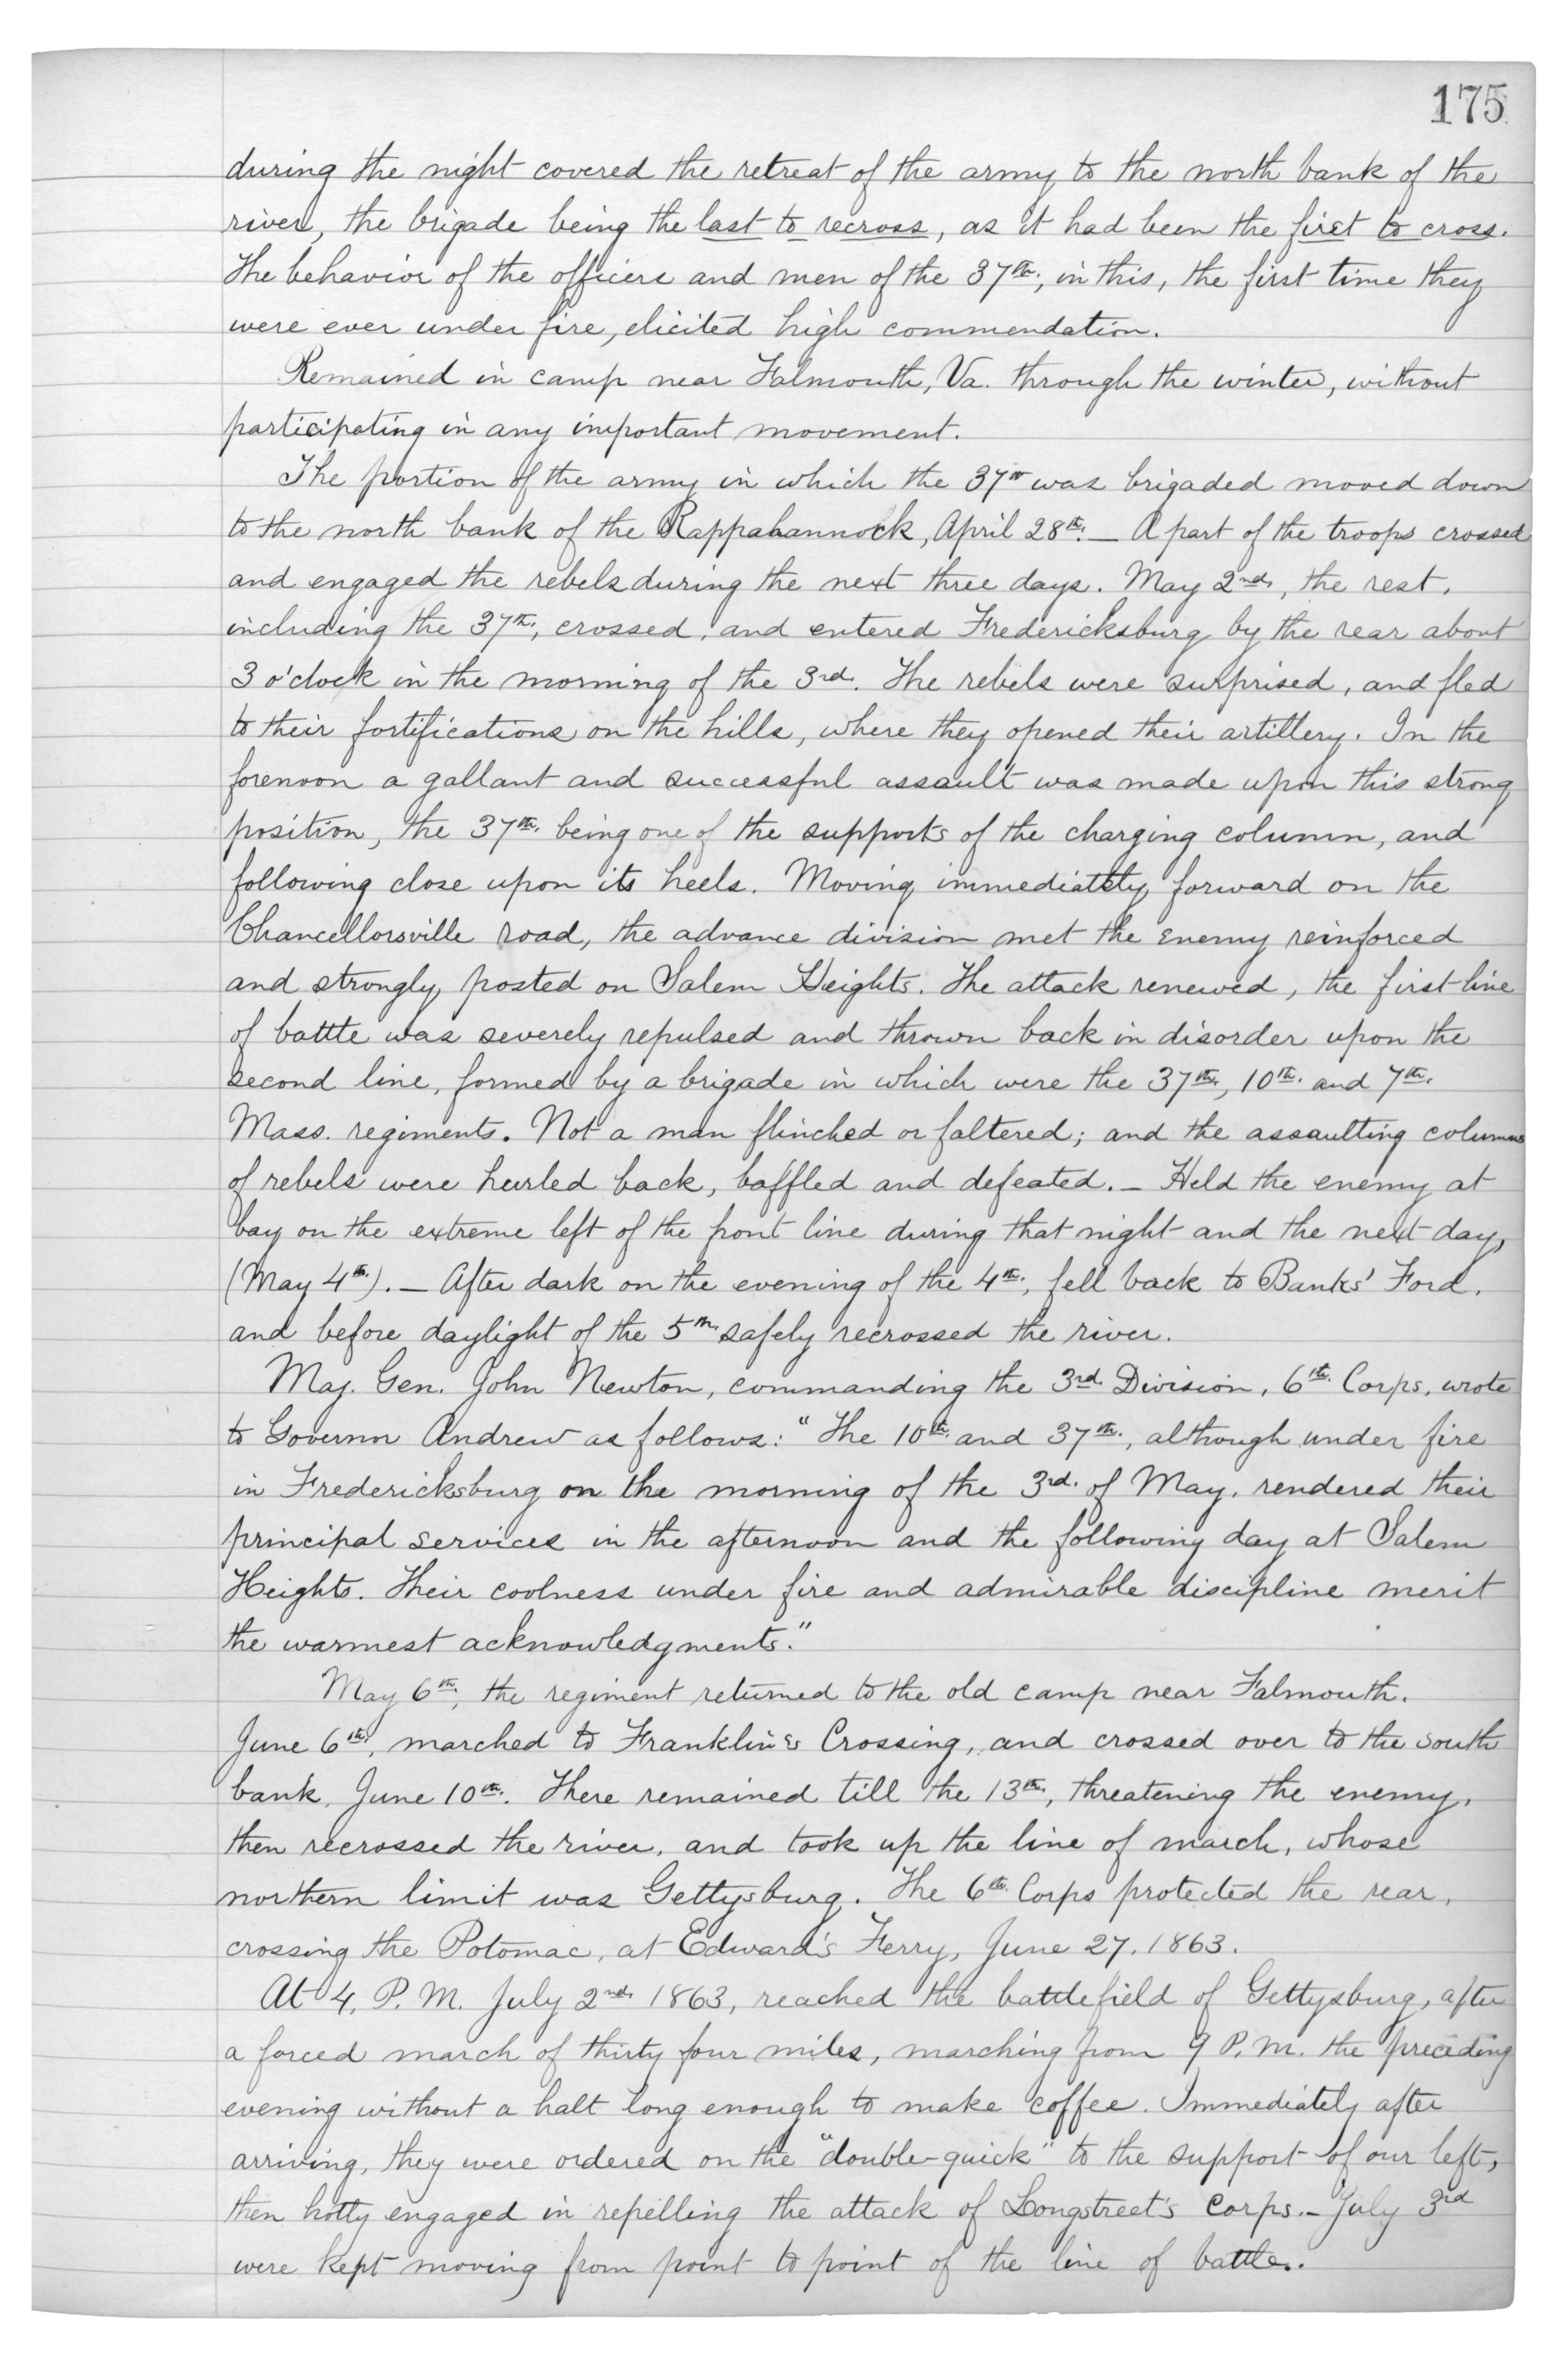 175
during the night covered the retreat of the army to the north bank of the
river, the brigade being the last to recross, as it had been the first to cross.
The behavior of the officers and men of the 37th., in this, the first time they
were ever under fire, elicited high commendation.
Remained in camp near Falmouth, Va. through the winter, without
participating in any important movement.
The portion of the army in which the 37th was brigaded moved down
to the north bank of the Rappahannock, April 28th. — A part of the troops crossed
and engaged the rebels during the next three days. May 2nd, the rest,
including the 37th., crossed, and entered Fredericksburg by the rear about
3 o'clock in the morning of the 3rd. The rebels were surprised, and fled
to their fortifications on the hills, where they opened their artillery. In the
forenoon a gallant and successful assault was made upon this strong
position, the 37th. being one of the supports of the charging column, and
following close upon its heels. Moving immediately forward on the
Chancellorsville road, the advance division met the enemy reinforced
and strongly posted on Salem Heights. The attack renewed, the first line
of battle was severely repulsed and thrown back in disorder upon the
second line, formed by a brigade in which were the 37th., 10th. and 7th.
Mass. regiments. Not a man flinched or faltered; and the assaulting columns
of rebels were hurled back, baffled and defeated. — Held the enemy at
bay on the extreme left of the front line during that night and the next day,
(May 4th.). — After dark on the evening of the 4th., fell back to Banks' Ford,
and before daylight of the 5th. safely recrossed the river.
Maj. Gen. John Newton, commanding the 3rd. Division, 6th. Corps, wrote
to Governor Andrew as follows: "The 10th. and 37th., although under fire
in Fredericksburg on the morning of the 3rd. of May, rendered their
principal services in the afternoon and the following day at Salem
Heights. Their coolness under fire and admirable discipline merit
the warmest acknowledgments."
May 6th., the regiment returned to the old camp near Falmouth.
June 6th., marched to Franklin's Crossing, and crossed over to the south
bank, June 10th. There remained till the 13th., threatening the enemy,
then recrossed the river, and took up the line of march, whose
northern limit was Gettysburg. The 6th. Corps protected the rear,
crossing the Potomac, at Edward's Ferry, June 27, 1863.
At 4, P.M. July 2nd, 1863, reached the battlefield of Gettysburg, after
a forced march of thirty four miles, marching from 9 P.M. the preceding
evening without a halt long enough to make coffee. Immediately after
arriving, they were ordered on the "double-quick" to the support of our left,
then hotly engaged in repelling the attack of Longstreet's Corps. — July 3rd
were kept moving from point to point of the line of battle.